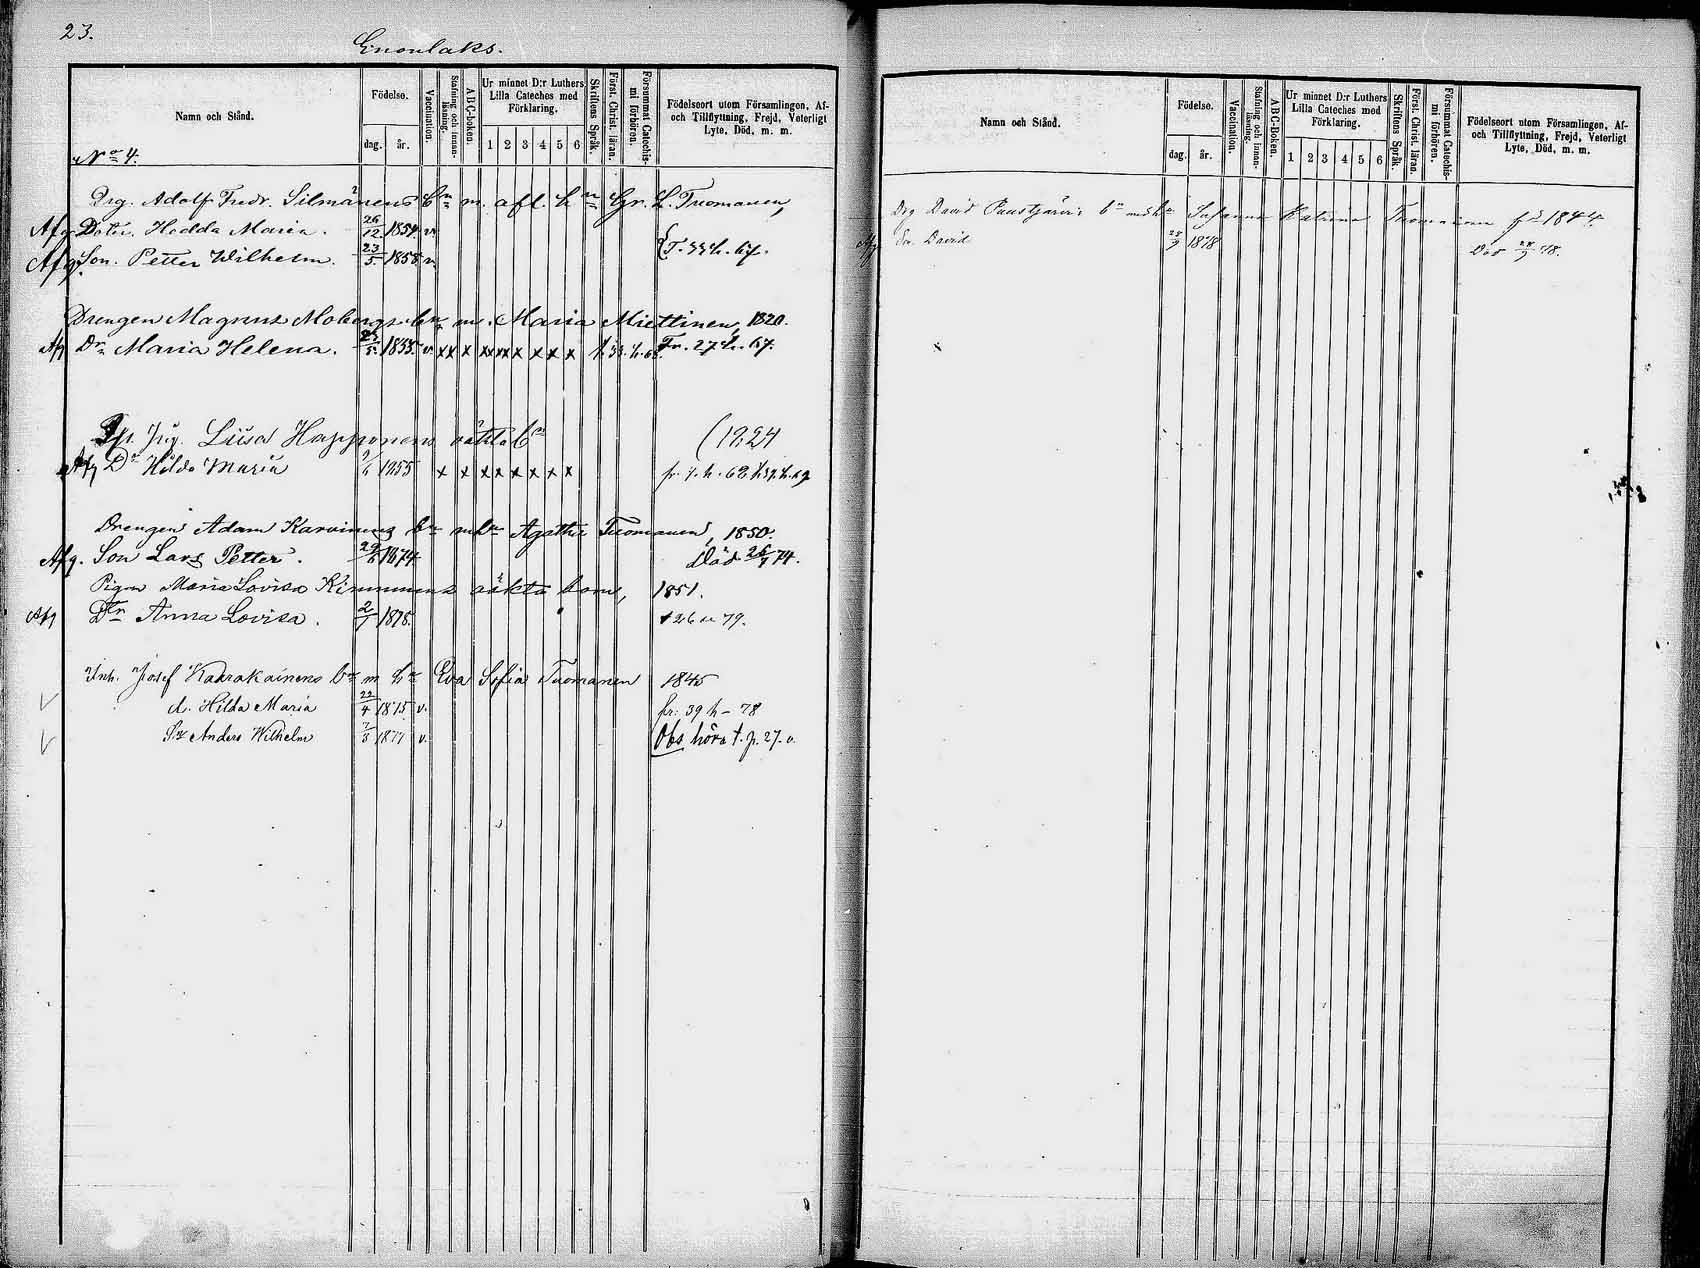 23.
Enonlaks.
Namn och Stånd.
Födelse.
dag.
år.
Vaccination.
Stafning och innanläsning.
A B C-boken.
Ur minnet D:r Luthers Lilla Cateches med Förklaring.
1 2 3 4 5 6
Skriftens Språk.
Först. Christ. läran.
Försummat Catechismi förhören.
Födelseort utom Församlingen, Af- och Tillflyttning, Frejd, Veterligt Lyte, Död, m. m.
No 4.
Drg. Adolf Fredr. Silmänens bn m. afl. h Gr. L. Tuomanen,
Afg Dotr. Hedda Maria. 26/12. 1854. v.
Afg. Son. Petter Wilhelm. 23/5. 1858 v. T. 33 h. 67.
Drengen Magnus Mobergs bn m. Maria Miettinen, 1820.
Afg Dr Maria Helena. 25/5. 1855. v xx x xxxx x x x x Fr. 27 h. 67.
Pig. Liisa Happonens oäkta bn (1824
Afg Dr Hilda Maria 1855 x x x x x x x x
Drengen Adam Karvinens bn m hn Agatha Tuomanen, 1850.
Afg. Son Lars Petter. 1874. Död 74.
Pigan Maria Lovisa Kinnunens oäkta barn, 1851.
Afg Dtr Anna Lovisa. 2/7 1878. † 26 79.
Inh. Josef Kaarakainens bn m hn Eva Sofia Tuomanen 1845
d. Hilda Maria 22/4 1875 v. fr. 39 h - 78
Sn Anders Wilhelm 7/3 1877 v. Obs höra t. p. 27. v.
Namn och Stånd.
Födelse.
dag.
år.
Vaccination.
Stafning och innanläsning.
A B C-Boken.
Ur minnet D:r Luthers Lilla Cateches med Förklaring.
1 2 3 4 5 6
Skriftens Språk.
Först. Christ. läran.
Försummat Catechismi förhören.
Födelseort utom Församlingen, Af- och Tillflyttning, Frejd, Veterligt Lyte, Död, m. m.
Drg David Puustjärvis bn m h Susanna Katarina Tuomanen fd 1844.
Afg Sn. David 1878 Död 78.